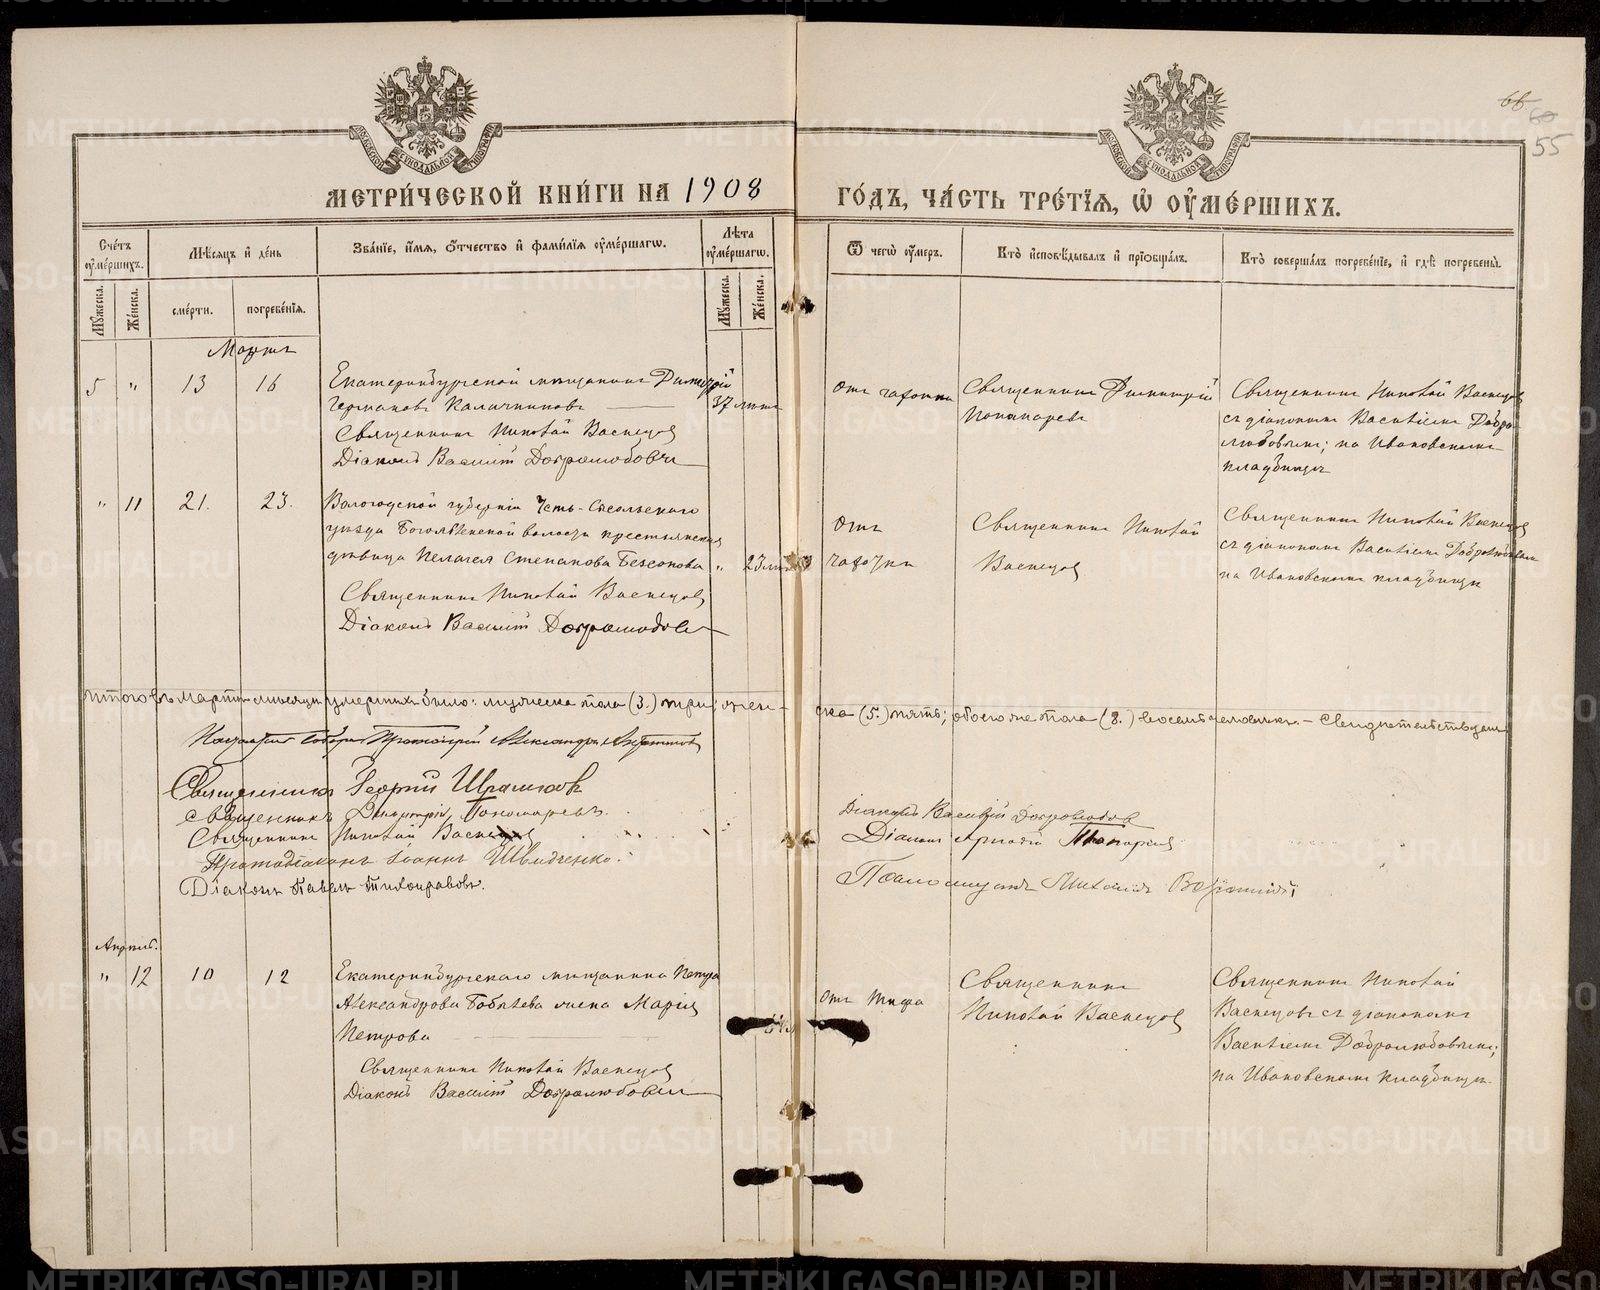 66
60
55
МОСКОВСКОЙ СѴНОДАЛЬНОЙ ТИПОГРАФІИ
МОСКОВСКОЙ СѴНОДАЛЬНОЙ ТИПОГРАФІИ
МЕТРИ́ЧЕСКОЙ КНИ́ГИ НА 1908
ГО́ДЪ, ЧА́СТЬ ТРЕ́ТЇѦ, Ѡ҆ ОУ҆МЕ́РШИХЪ.
Сче́тъ оу҆ме́ршихъ.
Мѣ́сяцъ и҆ де́нь
Зва́нїе, и҆́мѧ, ѻ҆́тчество и҆ фами́лїѧ оу҆ме́ршагѡ.
Лѣ́та оу҆ме́ршагѡ.
Ѿ чегѡ̀ оу҆́меръ.
Кто̀ и҆сповѣ́дывалъ и҆ прїѡбща́лъ.
Кто̀ соверша́лъ погребе́нїе, и҆ гдѣ̀ погребены̀.
Му́жеска.
Же́нска.
сме́рти.
погребе́нїѧ.
Му́жеска.
Же́нска.
Мартъ
5 " 13 16
Екатеринбургской мѣщанинъ Димитрій
Германовъ Калачниковъ
37 лѣтъ
Священникъ Николай Васнецов
Діаконъ Василій Добролюбовъ
отъ чахотки
Священникъ Димитрій
Пономаревъ
Священникъ Николай Васнецов
съ діакономъ Василіемъ Добро-
любовымъ; на Ивановскомъ
кладбищѣ
" 11 21. 23.
Вологодской губерніи Усть-Сысольскаго
уѣзда Богоявленской волости крестьянская
дѣвица Пелагея Степанова Безсонова
" 23 лѣтъ
Священникъ Николай Васнецов
Діаконъ Василій Добролюбовъ
отъ
чахотки
Священникъ Николай
Васнецов
Священникъ Николай Васнецов
съ діакономъ Василіемъ Добролюбовымъ
на Ивановскомъ кладбищѣ
Итого въ мартѣ мѣсяцѣ умершихъ было: мужеска пола (3.) три; жен-
ска (5.) пять; обоего же пола (8.) восемь человѣкъ. – Свидѣтельствуемъ
Настоятель Собора Протоіерей Александръ
Священникъ Георгій
Священникъ Димитрій Пономаревъ.
Священникъ Николай Васнецов
Протодіаконъ Іоаннъ Швидченко.
Діаконъ Павелъ Тихонравовъ.
Діаконъ Василій Добролюбов
Діаконъ
Псаломщикъ Михаилъ
Апрѣль.
" 12 10 12
Екатеринбургскаго мѣщанина Петра
Александрова Бобылева жена Марія
Петрова
Священникъ Николай Васнецов
Діаконъ Василій Добролюбовъ
отъ тифа
Священникъ
Николай Васнецов
Священникъ Николай
Васнецовъ съ діакономъ
Василіемъ Добролюбовымъ;
на Ивановскомъ кладбищѣ.
METRIKI.GASO-URAL.RU